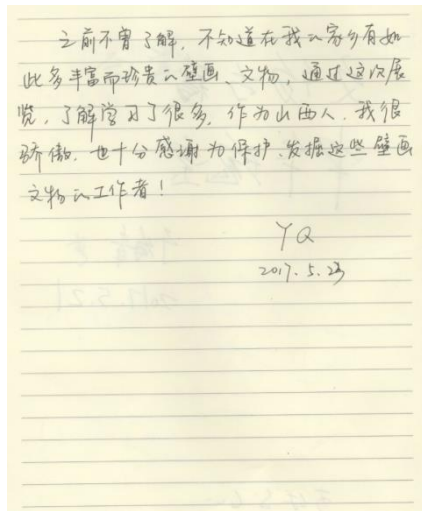 之前不曾了解，不知道在我的家乡有如
此多丰富而珍贵的壁画、文物，通过这次展
览，了解学习了很多，作为山西人，我很
骄傲，也十分感谢为保护、发掘这些壁画
文物的工作者！
YQ
2017.5.23